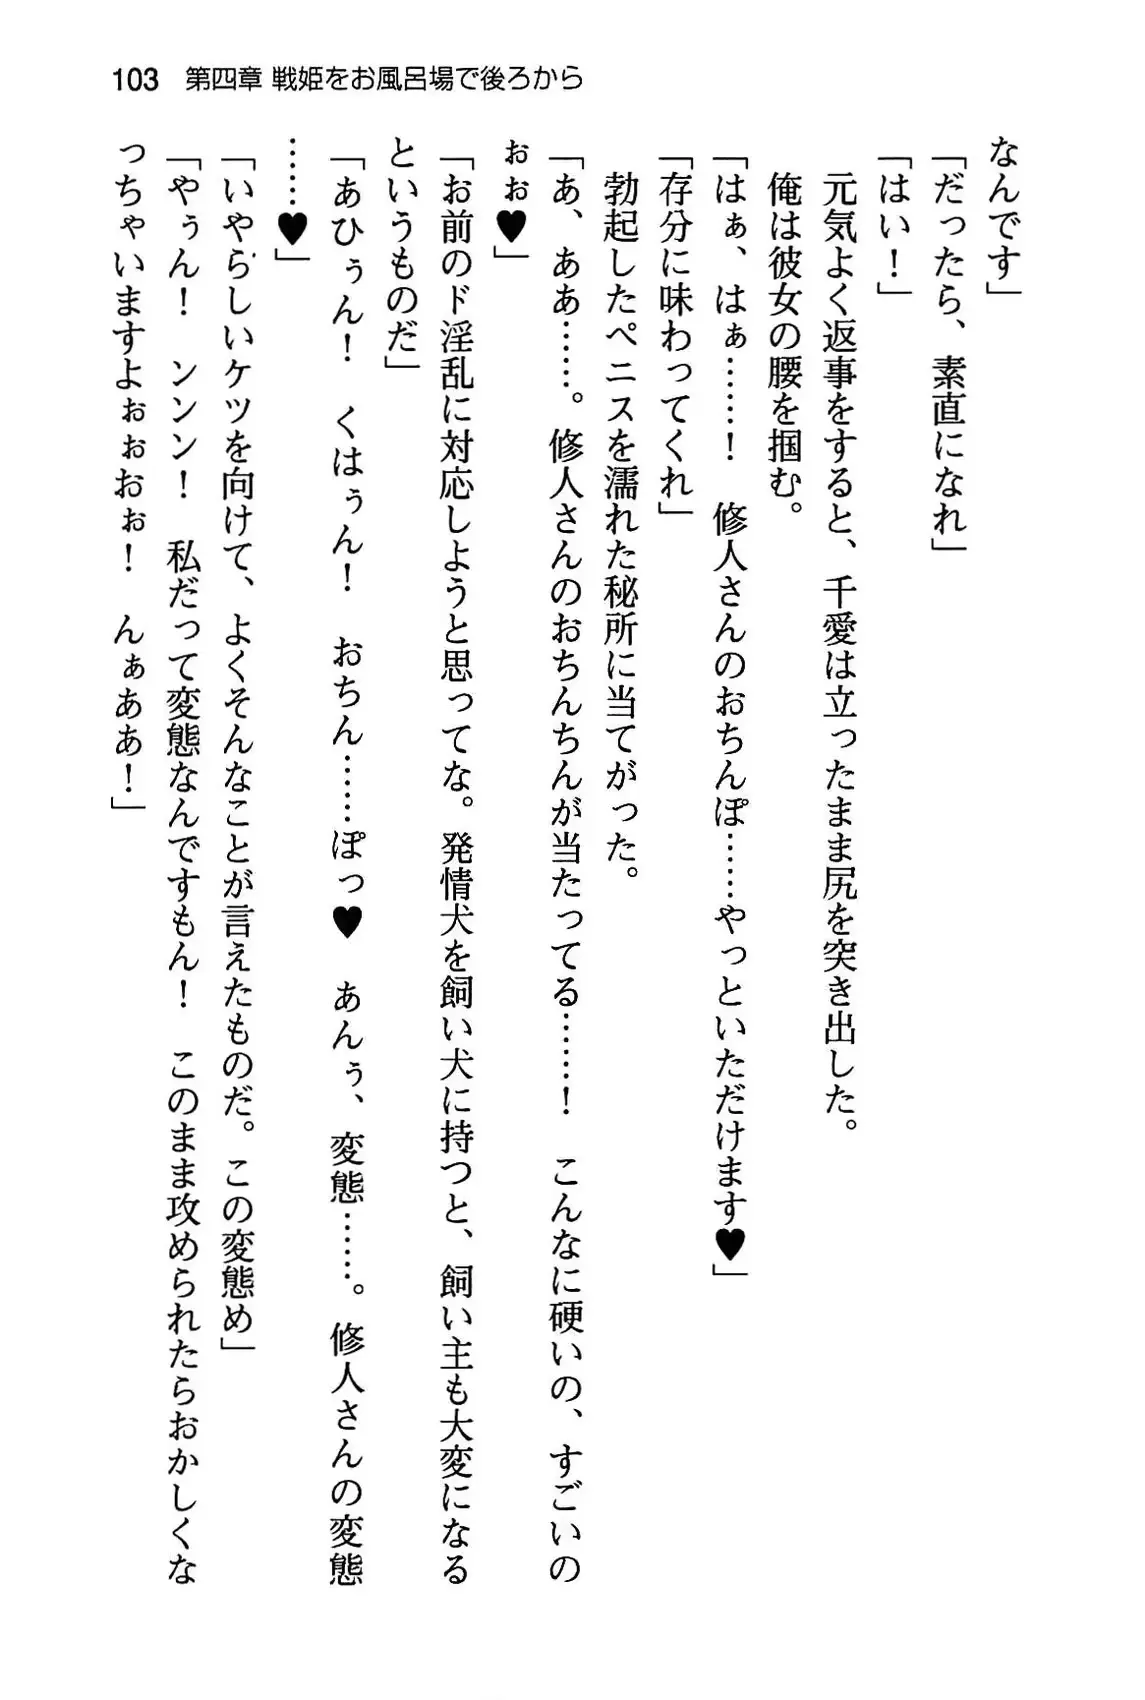 103 第四章 戦姫をお風呂場で後ろから
なんです」
「だったら、素直になれ」
「はい！」
　元気よく返事をすると、千愛は立ったまま尻を突き出した。
　俺は彼女の腰を掴む。
「はぁ、はぁ……！　修人さんのおちんぽ……やっといただけます♥」
「存分に味わってくれ」
　勃起したペニスを濡れた秘所に当てがった。
「あ、ああ……。修人さんのおちんちんが当たってる……！　こんなに硬いの、すごいの
ぉぉ♥」
「お前のド淫乱に対応しようと思ってな。発情犬を飼い犬に持つと、飼い主も大変になる
というものだ」
「あひぅん！　くはぅん！　おちん……ぽっ♥　あんぅ、変態……。修人さんの変態
……♥」
「いやらしいケツを向けて、よくそんなことが言えたものだ。この変態め」
「やぅん！　ンンン！　私だって変態なんですもん！　このまま攻められたらおかしくな
っちゃいますよぉぉおぉ！　んぁああ！」